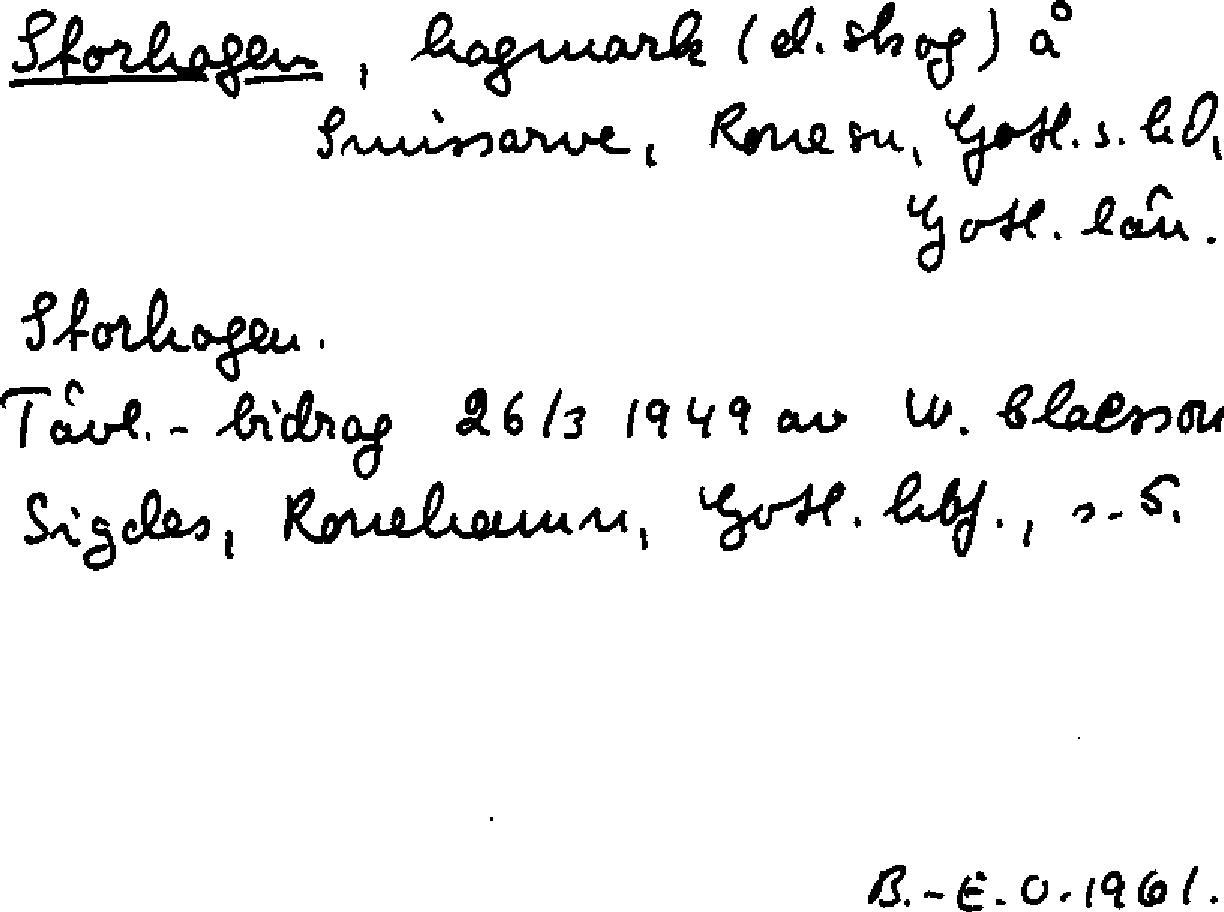 Storhagen, hagmark (el. skog) å
Smissarve, Rone sn, Gotl. s. hd,
Gotl. län.
Storhagen.
Tävl.-bidrag 26/3 1949 av W. Claesson
Sigdes, Ronehamn, Gotl. hbf., s. 5.
B.-E. O. 1961.